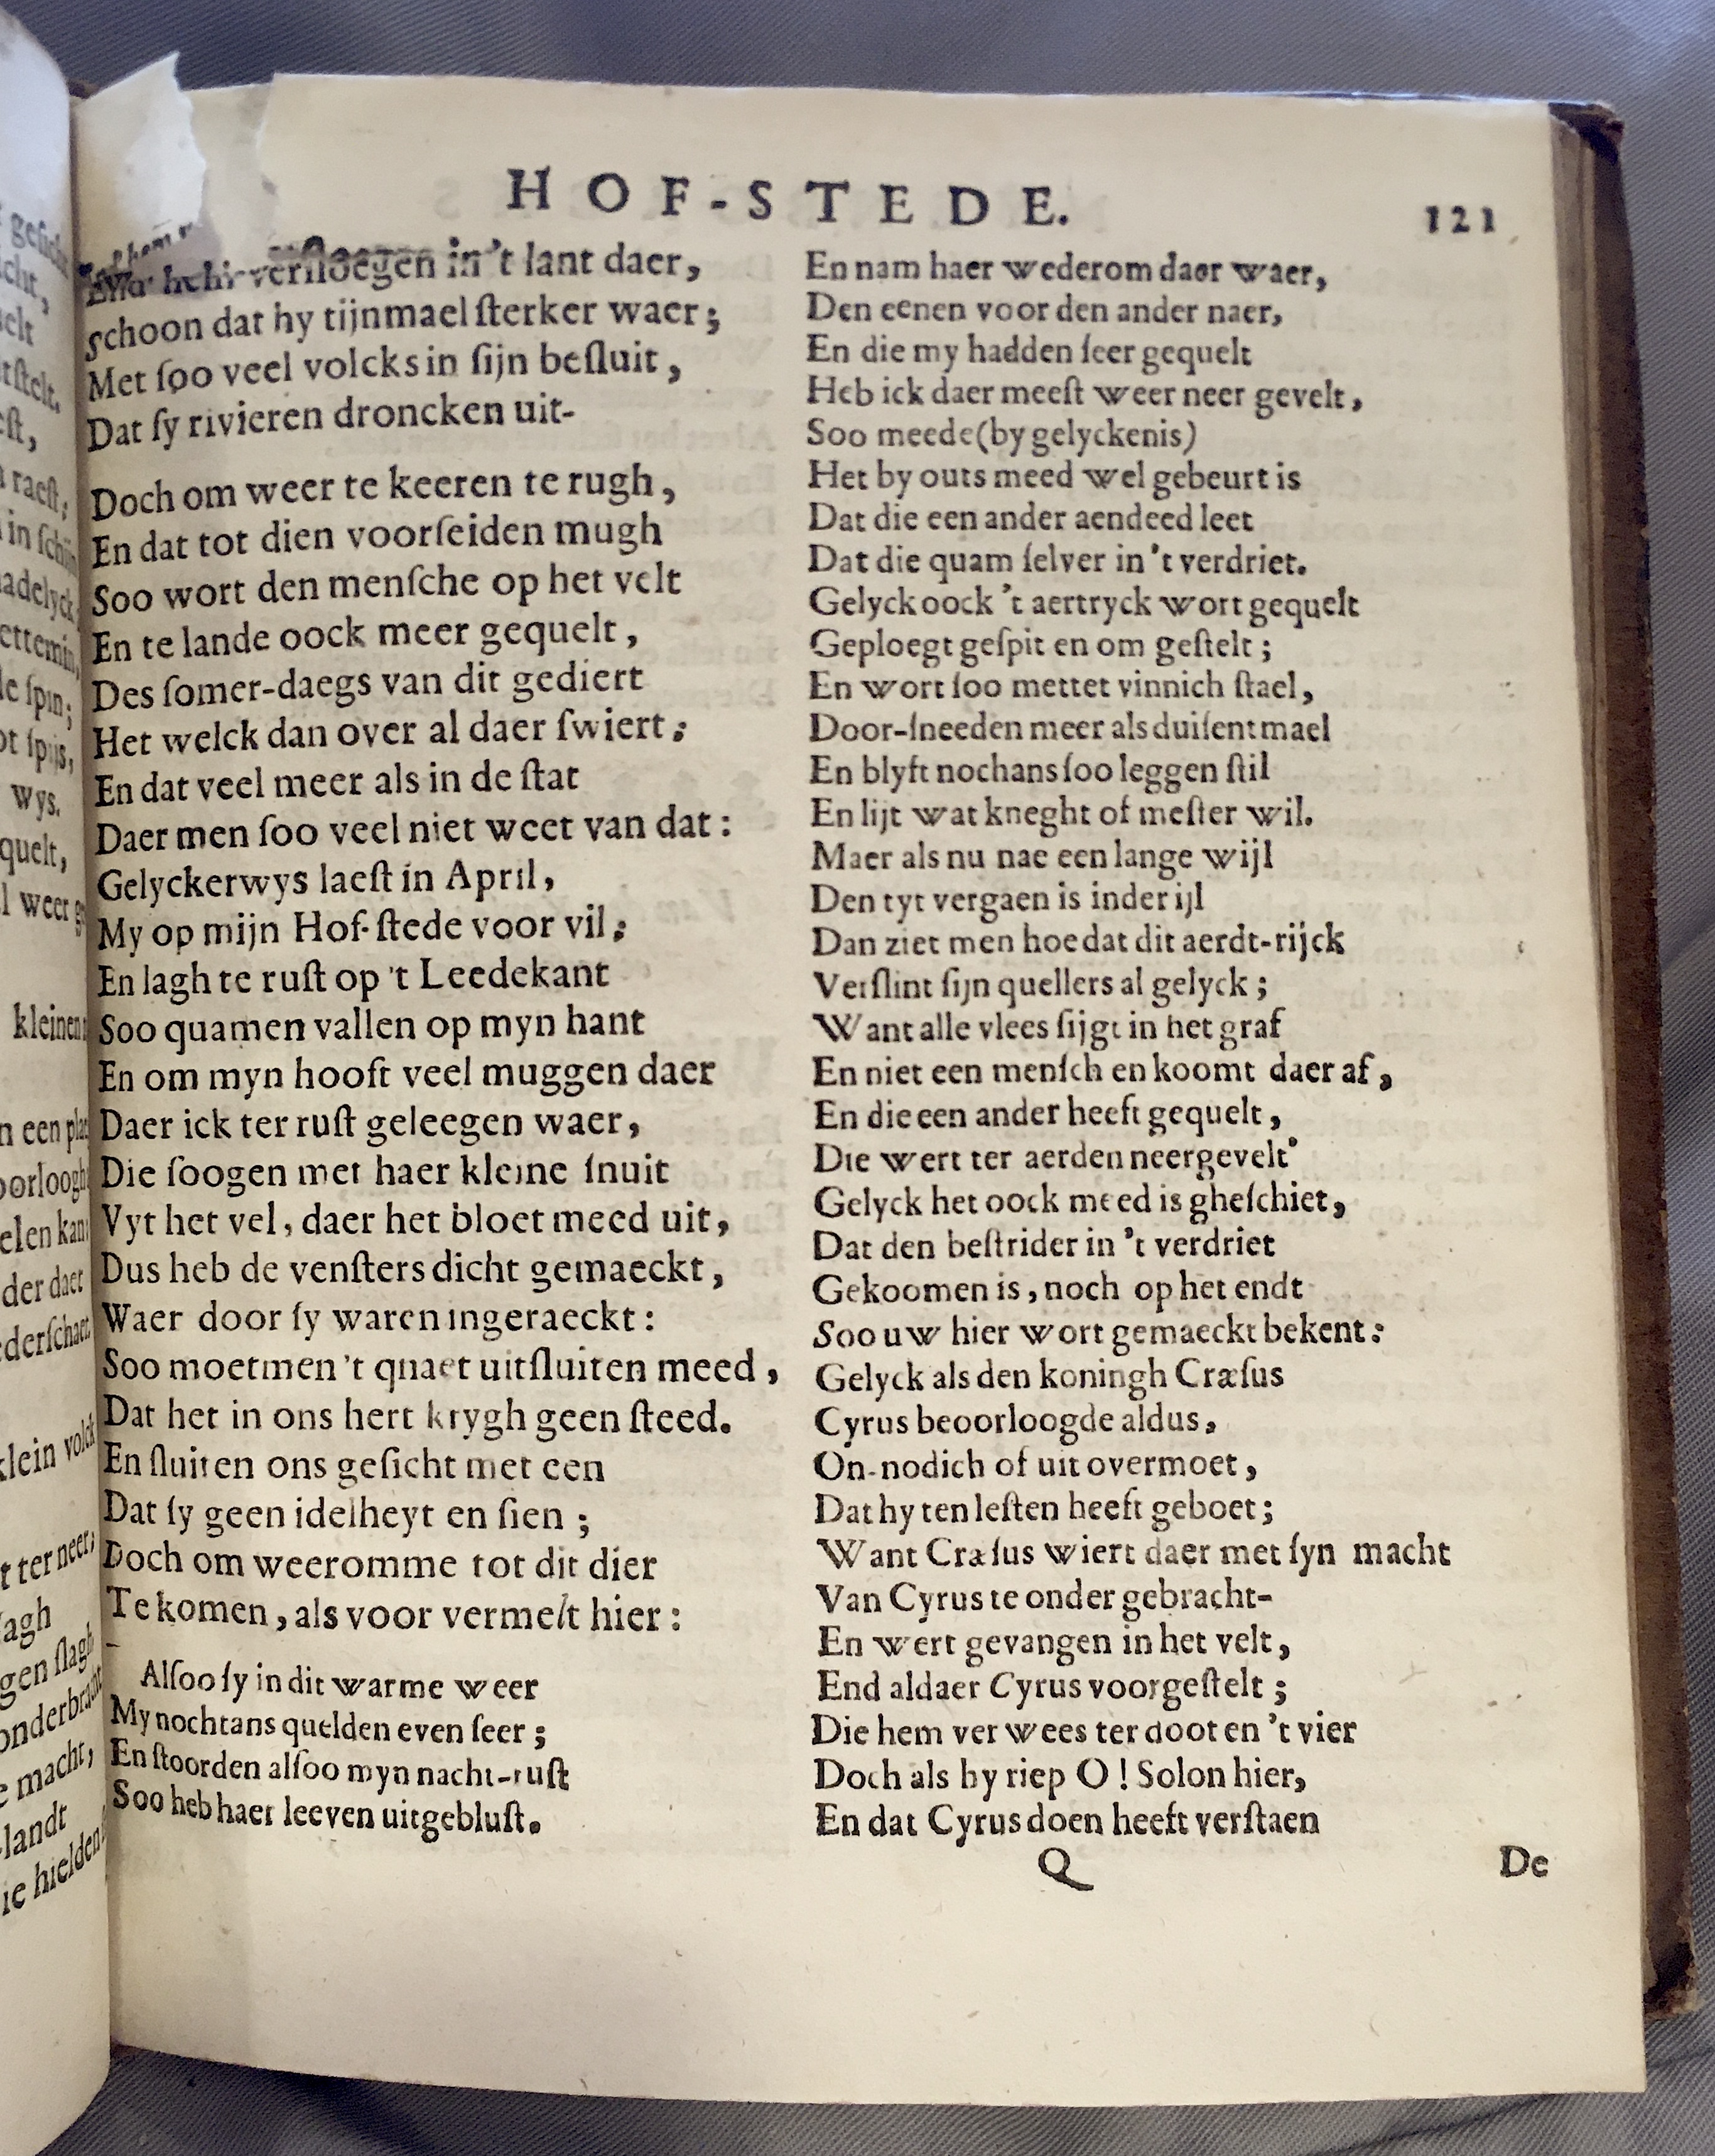 HOF-STEDE. 121
verſloegen in 't lant daer,
schoon dat hy tijnmael ſterker waer;
Met ſoo veel volcks in ſijn beſluit,
Dat ſy rivieren droncken uit-
Doch om weer te keeren te rugh,
En dat tot dien voorſeiden mugh
Soo wort den menſche op het velt
En te lande oock meer gequelt,
Des ſomer-daegs van dit gediert
Het welck dan over al daer ſwiert:
En dat veel meer als in de ſtat
Daer men ſoo veel niet weet van dat:
Gelyckerwys laeſt in April,
My op mijn Hof-ſtede voor vil;
En lagh te ruſt op 't Leedekant
Soo quamen vallen op myn hant
En om myn hooft veel muggen daer
Daer ick ter ruſt geleegen waer,
Die ſoogen met haer kleine ſnuit
Vyt het vel, daer het bloet meed uit,
Dus heb de venſters dicht gemaeckt,
Waer door ſy waren ingeraeckt:
Soo moetmen 't quaet uitſluiten meed,
Dat het in ons hert krygh geen ſteed.
En ſluiten ons geſicht met een
Dat ſy geen idelheyt en ſien;
Doch om weeromme tot dit dier
Te komen, als voor vermelt hier:
Alſoo ſy in dit warme weer
My nochtans quelden even ſeer;
En ſtoorden alſoo myn nacht-ruſt
Soo heb haer leeven uitgebluſt.
En nam haer wederom daer waer,
Den eenen voor den ander naer,
En die my hadden ſeer gequelt
Heb ick daer meeſt weer neer gevelt,
Soo meede (by gelyckenis)
Het by outs meed wel gebeurt is
Dat die een ander aendeed leet
Dat die quam ſelver in 't verdriet.
Gelyck oock 't aertryck wort gequelt
Geploegt geſpit en om geſtelt;
En wort ſoo mettet vinnich ſtael,
Door-ſneeden meer als duiſent mael
En blyft nochans ſoo leggen ſtil
En lijt wat kneght of meſter wil.
Maer als nu nae een lange wijl
Den tyt vergaen is inder ijl
Dan ziet men hoe dat dit aerdt-rijck
Verſlint ſijn quellers al gelyck;
Want alle vlees ſijgt in het graf
En niet een menſch en koomt daer af,
En die een ander heeft gequelt,
Die wert ter aerden neergevelt.
Gelyck het oock meed is gheſchiet,
Dat den beſtrider in 't verdriet
Gekoomen is, noch op het endt
Soo uw hier wort gemaeckt bekent:
Gelyck als den koningh Cræſus
Cyrus beoorloogde aldus,
On-nodich of uit overmoet,
Dat hy ten leſten heeft geboet;
Want Cræſus wiert daer met ſyn macht
Van Cyrus te onder gebracht-
En wert gevangen in het velt,
End aldaer Cyrus voorgeſtelt;
Die hem ver wees ter doot en 't vier
Doch als hy riep O! Solon hier,
En dat Cyrus doen heeft verſtaen
Q De